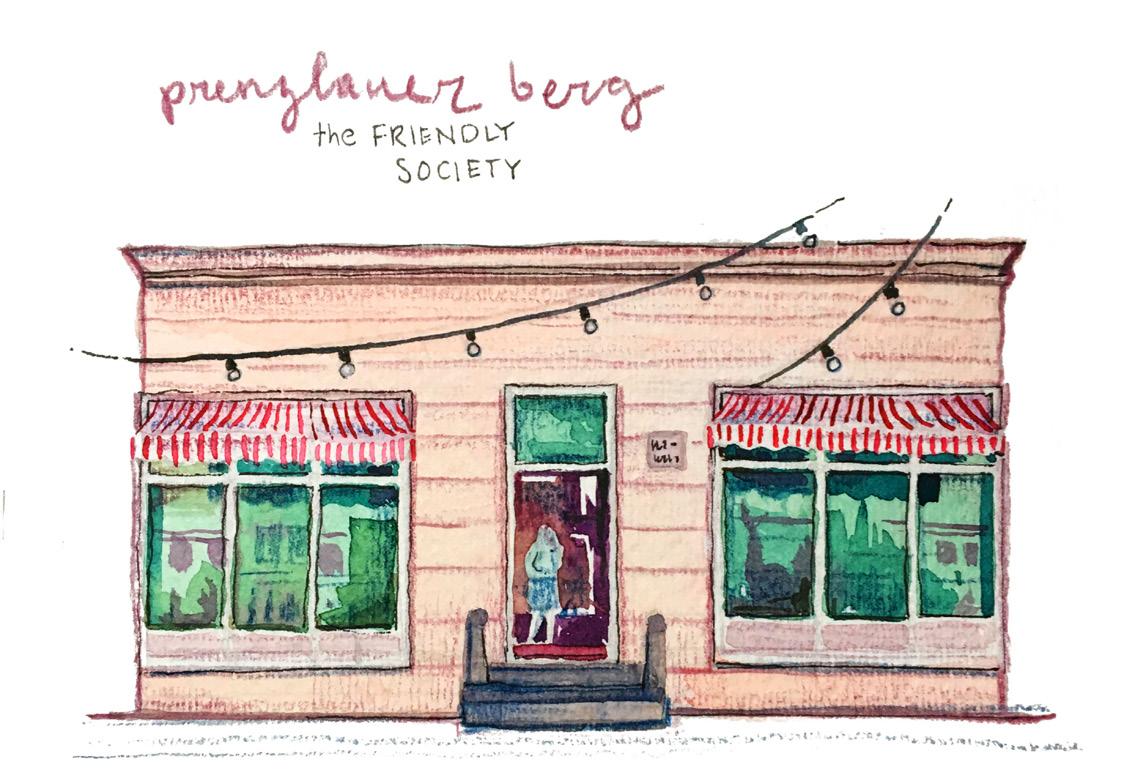 prenzlauer berg
the FRIENDLY
SOCIETY